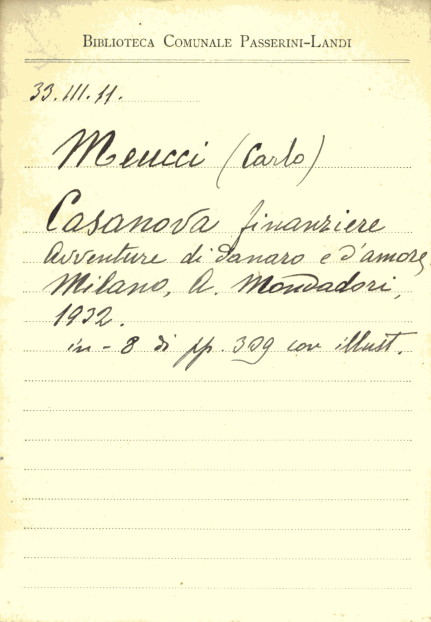 BIBLIOTECA COMUNALE PASSERINI-LANDI
33.III.11.
Meucci (Carlo)
Casanova finanziere
Avventure di danaro e d'amore,
Milano, A. Mondadori,
1932.
in-8 di pp. 329 con illust.